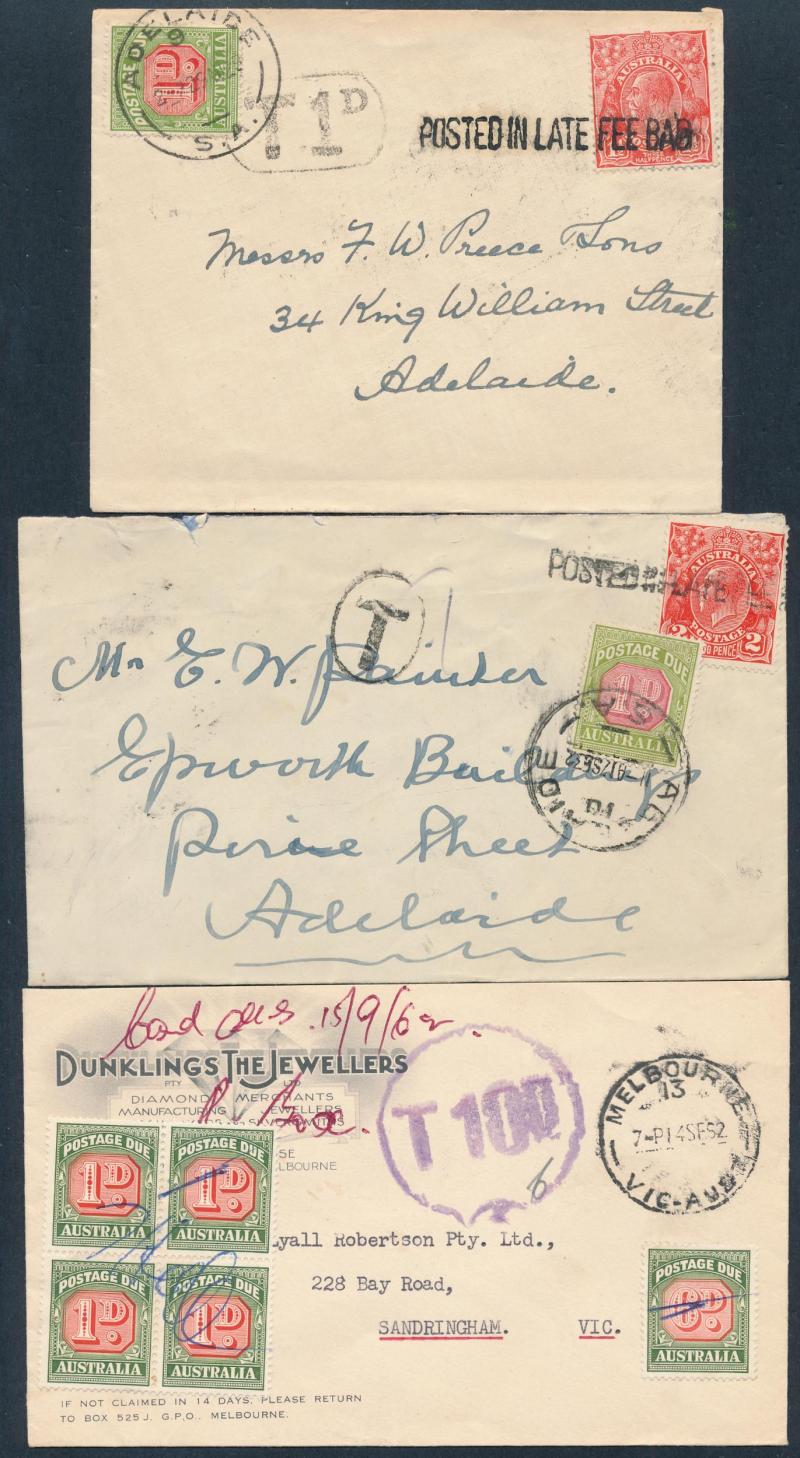 ADELAIDE
S.A.
POSTAGE DUE
1D.
AUSTRALIA
T 1D
AUSTRALIA
HALFPENCE
POSTED IN LATE FEE BAG
Messrs F. W. Preece Sons
34 King William Street
Adelaide.
POSTED LATE
AUSTRALIA
POSTAGE
2 2
PENCE
T
POSTAGE DUE
1D
AUSTRALIA
Mr E. W. Painter
Epworth Buildings
Pirie Street
Adelaide
15/9/
DUNKLINGS THE JEWELLERS
PTY LTD
DIAMOND MERCHANTS
MANUFACTURING JEWELLERS
MELBOURNE
T 10D
6
MELBOURNE
13
7-P14SE52
VIC-AUST
POSTAGE DUE
1D.
AUSTRALIA
POSTAGE DUE
1D.
AUSTRALIA
POSTAGE DUE
1D.
AUSTRALIA
POSTAGE DUE
1D.
AUSTRALIA
Lyall Robertson Pty. Ltd.,
228 Bay Road,
SANDRINGHAM. VIC.
POSTAGE DUE
6D.
AUSTRALIA
IF NOT CLAIMED IN 14 DAYS, PLEASE RETURN
TO BOX 525J, G.P.O., MELBOURNE.